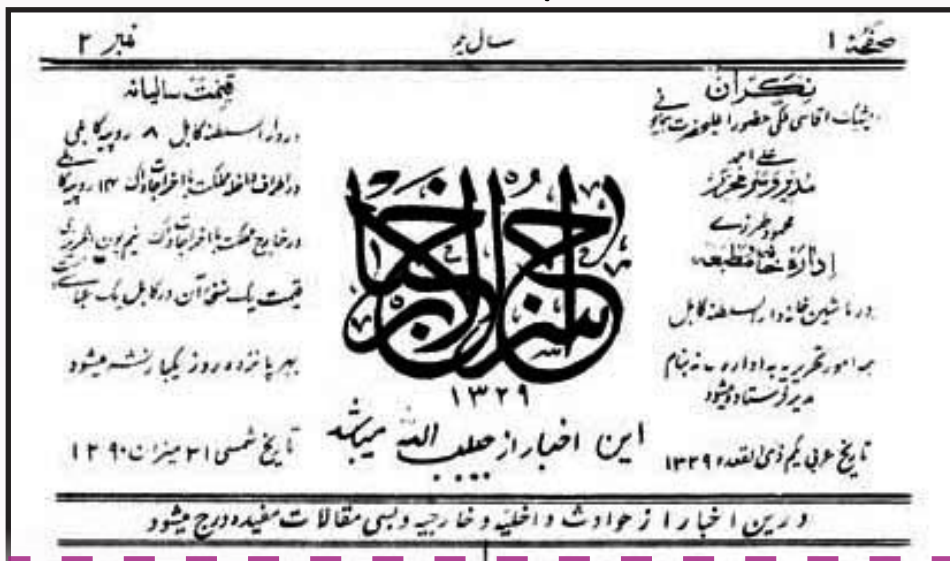 صفحهٔ ۱
سال یم
نمبر ۲
نگران
ایشیک اقاسی ملکی حضور اعلیحضرت همایونی
علی احمد
مدیر و سر محرر
محمود طرزی
ادارهٔ خانهٔ مطبعه
در ماشین خانه دار السلطنه کابل
مدیر فرستاده میشود
تاریخ عربی یکم ذی القعده ۱۳۲۹
سراج الاخبار
۱۳۲۹
این اخبار از میباشد
قیمت سالیانه
در دار السلطنه کابل ۸ روپیه کابلی
در اطراف داخله مملکت با اخراجات داک روپیه
در خارج مملکت با اخراجات داک نیم پون انگریزی
قیمت یک نسخهٔ آن در کابل یک عباسی
بهر پانزده روز یکبار نشر میشود
تاریخ شمسی ۳۱ میزان ۱۲۹۰
درین اخبار از حوادث داخلیه و خارجیه و بسی مقالات مفیده درج میشود